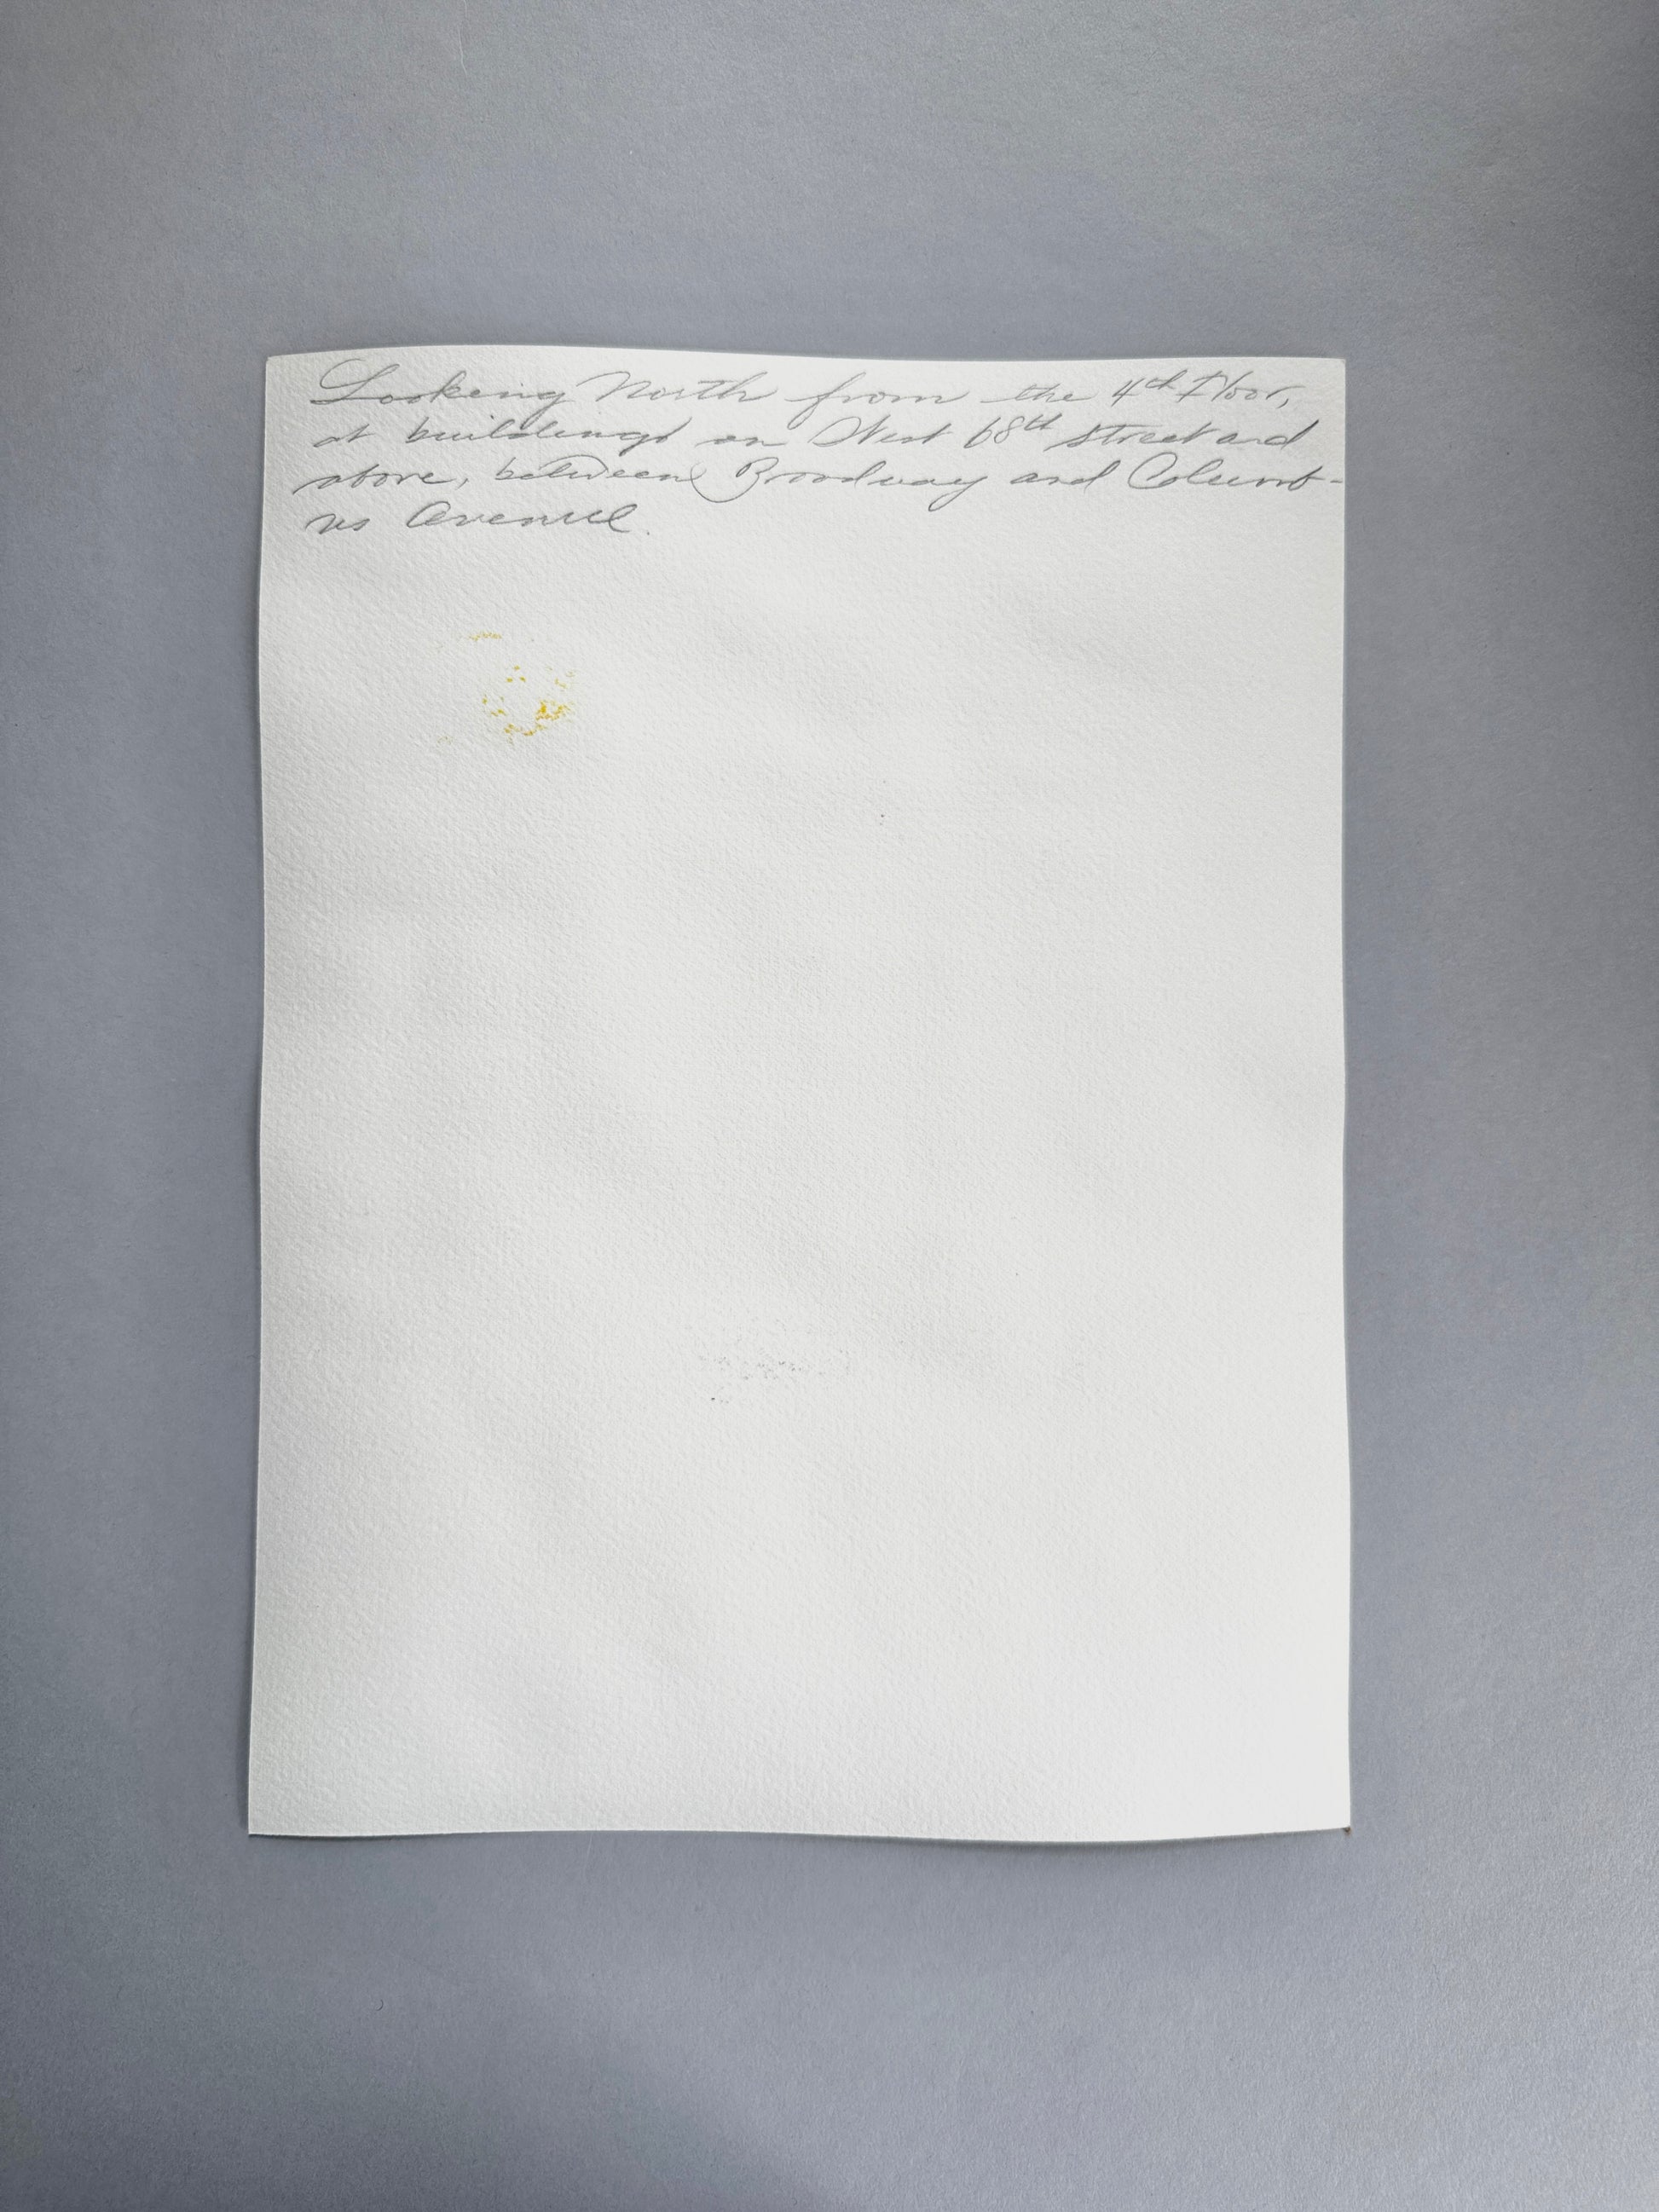 Looking North from the 4th Floor,
at buildings on West 68th Street and
above, between Broadway and Columb-
us Avenue.